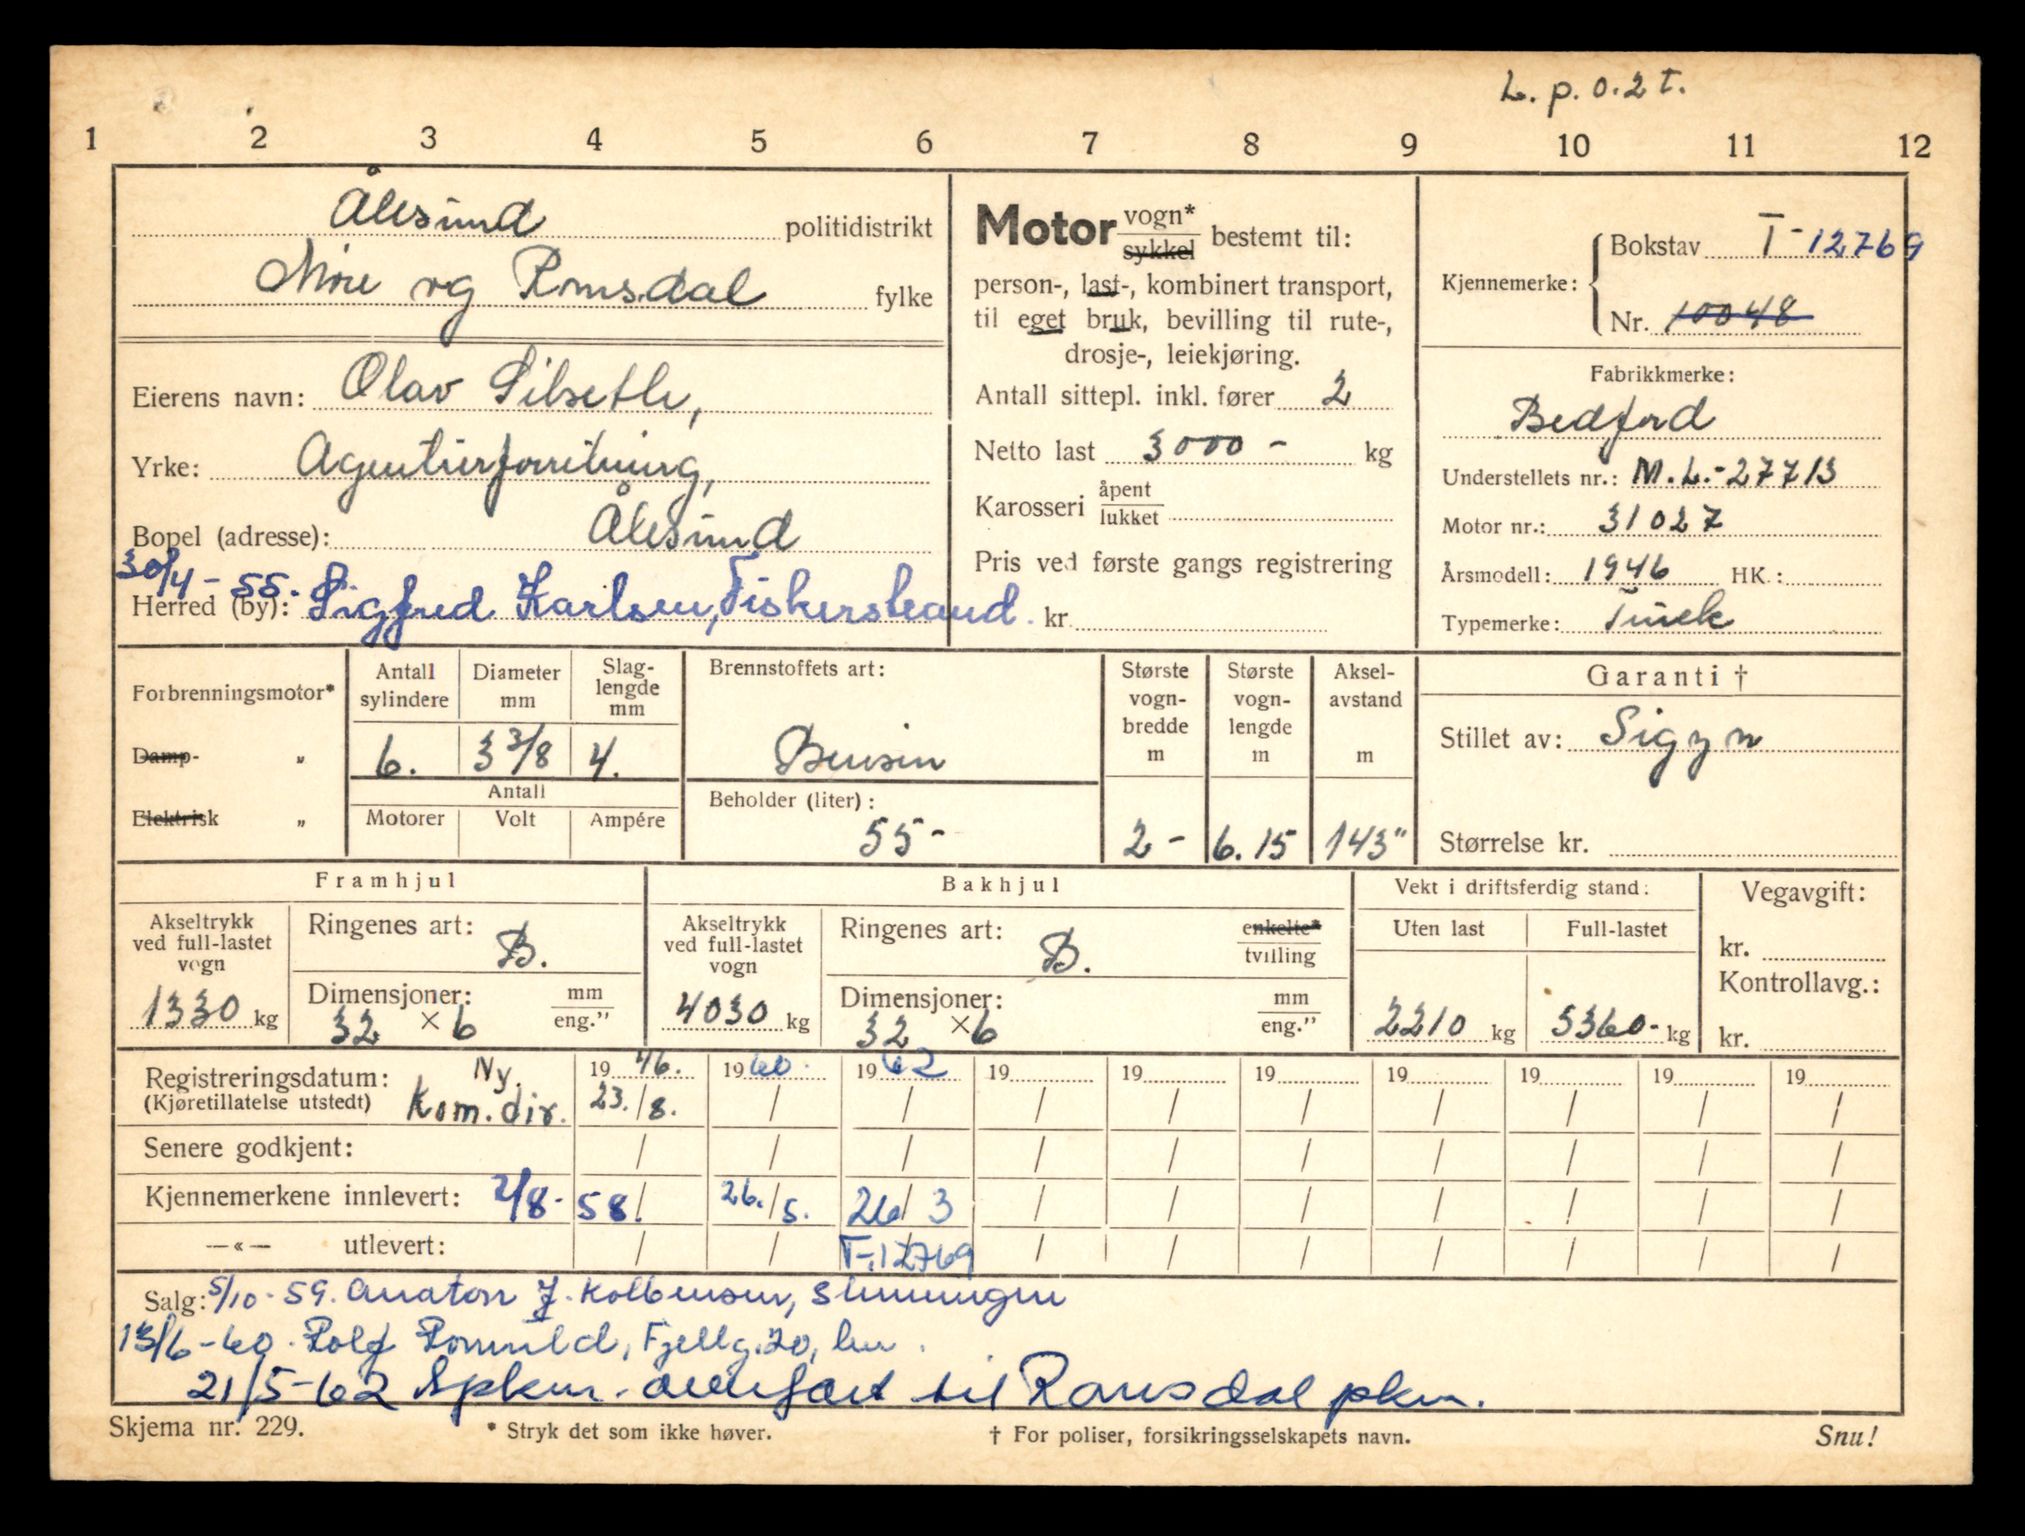 L. p. o. 2 t.
1 2 3 4 5 6 7 8 9 10 11 12
Ålesund politidistrikt
Møre og Romsdal fylke
Eierens navn: Olav Silseth,
Yrke: Agenturforretning,
Bopel (adresse): Ålesund
30/4-55.
Herred (by): Sigfred Karlsen, Fiskerstrand.
Motor vogn* sykkel bestemt til:
person-, last-, kombinert transport,
til eget bruk, bevilling til rute-,
drosje-, leiekjøring.
Antall sittepl. inkl. fører 2
Netto last 3000 - kg
Karosseri åpent lukket
Pris ved første gangs registrering
kr.
Kjennemerke: Bokstav T-12769
Nr. 10048
Fabrikkmerke:
Bedford
Understellets nr.: M.L.-27713
Motor nr.: 31027
Årsmodell: 1946 HK.:
Typemerke: Truck
Forbrenningsmotor*
Damp- „
Elektrisk „
Antall sylindere
6.
Diameter mm
3 3/8
Slag-lengde mm
4.
Antall
Motorer Volt Ampére
Brennstoffets art:
Bensin
Beholder (liter):
55-
Største vogn-bredde m
2 -
Største vogn-lengde m
6.15
Aksel-avstand m
143"
Garanti †
Stillet av: Sigyn
Størrelse kr.
Framhjul
Akseltrykk
ved full-lastet
vogn
1330 kg
Ringenes art: B.
Dimensjoner: mm
32 × 6 eng.”
Bakhjul
Akseltrykk
ved full-lastet
vogn
4030 kg
Ringenes art: B. enkelte* tvilling
Dimensjoner: mm
32 × 6 eng.”
Vekt i driftsferdig stand:
Uten last Full-lastet
2210 kg 5360- kg
Vegavgift:
kr.
Kontrollavg.:
kr.
Registreringsdatum: Ny. 1946. 1960. 1962 19 19 19 19 19 19 19
(Kjøretillatelse utstedt) Kom. dir. 23./8. / / / / / / / / /
Senere godkjent: / / / / / / / / / /
Kjennemerkene innlevert: 2/8-58. / 26./5. 26/3 / / / / / / /
—«— utlevert: / / T-12769 / / / / / / /
Salg: 5/10-59. Anaton J. Kolbensen, Slinningen
13/6-60. Rolf Romuld, Fjellg. 20, her.
21/5-62 Spkm. overført til Romsdal pkm.
Skjema nr. 229. * Stryk det som ikke høver. † For poliser, forsikringsselskapets navn. Snu!